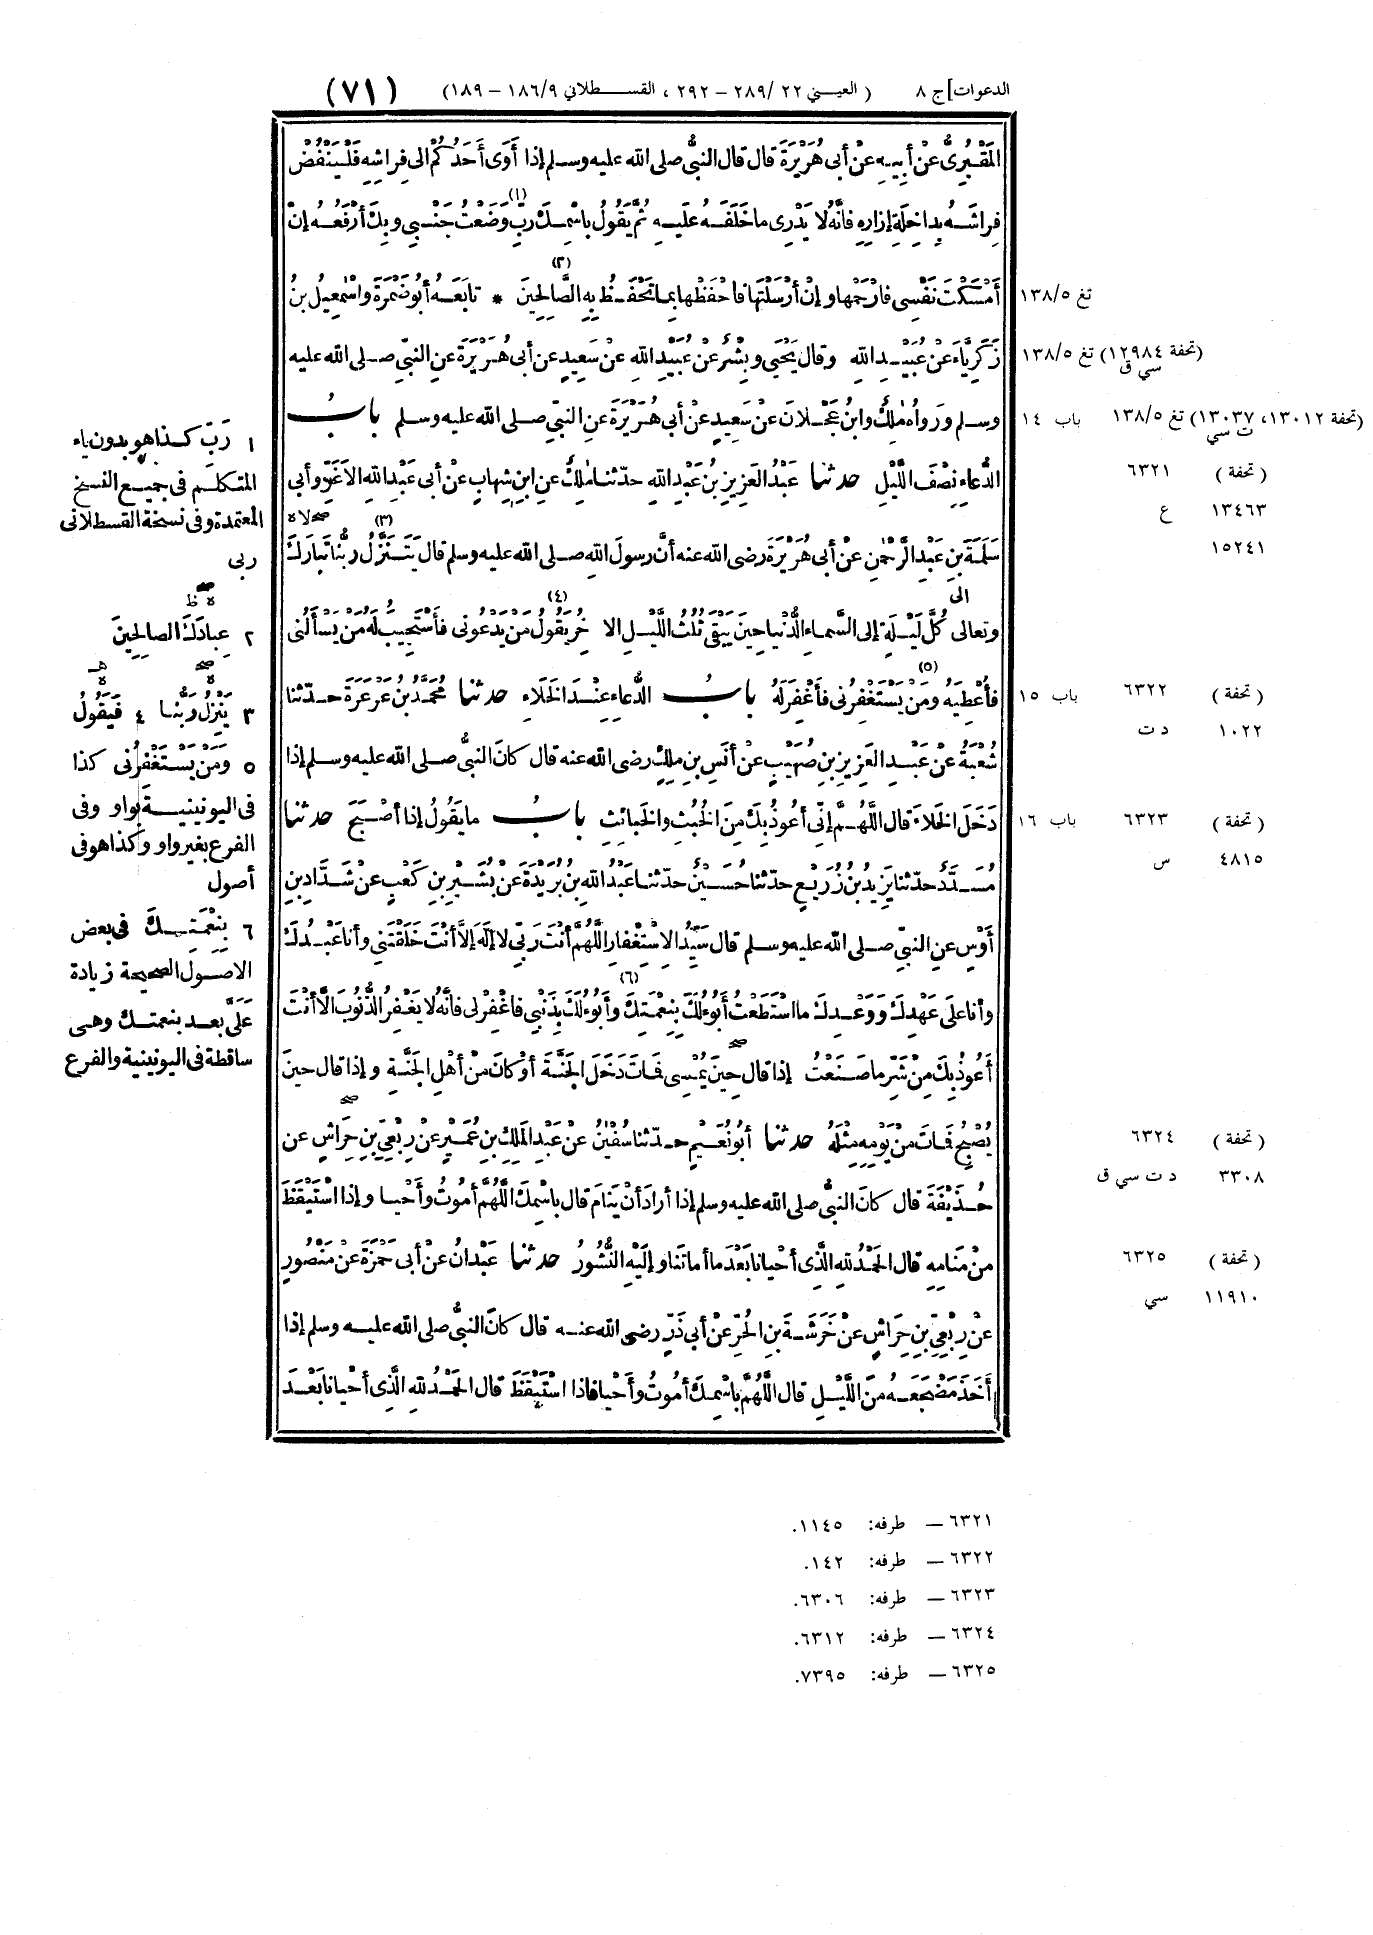 الدعوات] ج ٨ ( العيني ٢٢ /٢٨٩ - ٢٩٢ ، القسطلاني ١٨٦/٩ - ١٨٩) (٧١)
المَقْبُرِىُّ عنْ أبِيهِ عنْ أبى هُرَيْرَةَ قال قال النبىُّ صلى الله عليه وسلم إذا أَوَى أَحَدُكُمْ الى فِراشِهِ فَلْيَنْفُضْ
فِراشَهُ بِداخِلَةِ إزارِهِ فانَّهُ لا يَدْرِى ما خَلَفَهُ عَلَيهِ ثُمَّ يَقُولُ بِاسْمِكَ رَبِّ (١) وَضَعْتُ جَنْبِى وبِكَ أرْفَعُهُ إنْ
أَمْسَكْتَ نَفْسِى فارْحَمْها وإنْ أَرْسَلْتَها فاحْفَظْها بِما تَحْفَظُ بِهِ الصَّالِحِينَ (٢) * تابَعَهُ أبُو ضَمْرَةَ واسْمٰعِيلُ بنُ
تغ ١٣٨/٥
زَكَرِيَّاءَ عنْ عُبَيْدِ اللهِ وقال يَحْيَى وبِشْرٌ عنْ عُبَيْدِ اللهِ عنْ سَعِيدٍ عن أبى هُرَيْرَةَ عنِ النبىِّ صلى الله عليه
(تحفة ١٢٩٨٤) تغ ١٣٨/٥
سي ق
وسلم ورَواهُ مٰلِكٌ وابنُ عَجْلانَ عنْ سَعِيدٍ عنْ أبى هُرَيْرَةَ عنِ النبىِّ صلى الله عليه وسلم بابُ
(تحفة ١٣٠١٢، ١٣٠٣٧) تغ ١٣٨/٥ باب ١٤
ت سي
الدُّعاءِ نِصْفَ اللَّيْلِ حدثنا عَبْدُ العَزِيزِ بنُ عَبْدِ اللهِ حدّثنا مٰلِكٌ عنِ ابنِ شِهابٍ عنْ أبى عَبْدِ اللهِ الاَغَرِّ وأبى
(تحفة) ٦٣٢١
١٣٤٦٣ ع
١٥٢٤١
سَلَمَةَ بنِ عَبْدِ الرَّحْمٰنِ عنْ أبى هُرَيْرَةَ رضى الله عنه أنَّ رسولَ اللهِ صلى الله عليه وسلم قال يَتَنَزَّلُ (٣) رَبُّنا تَبارَكَ
وتعالى كُلَّ لَيْلَةٍ إلى السَّماءِ الدُّنيا حِينَ يَبْقَى ثُلُثُ اللَّيْلِ الاٰخِرُ يَقُولُ (٤) مَنْ يَدْعُونى فأَسْتَجِيبَ لَهُ مَن يَسْألُنى
الى
فأُعْطِيَهُ ومَنْ (٥) يَسْتَغْفِرُنى فأَغْفِرَ لَهُ بابُ الدُّعاءِ عِنْدَ الخَلاءِ حدثنا مُحَمَّدُ بنُ عَرْعَرَةَ حدّثنا
(تحفة) ٦٣٢٢ باب ١٥
١٠٢٢ د ت
شُعْبَةُ عنْ عَبْدِ العَزِيزِ بنِ صُهَيْبٍ عنْ أنَسِ بنِ مٰلِكٍ رضى الله عنه قال كانَ النبىُّ صلى الله عليه وسلم إذا
دَخَلَ الخَلاءَ قال اللَّهُمَّ إنّى أعُوذُ بِكَ مِنَ الخُبُثِ والخَبائِثِ بابُ ما يَقُولُ إذا أصْبَحَ حدثنا
(تحفة) ٦٣٢٣ باب ١٦
٤٨١٥ س
مُسَدَّدٌ حدّثنا يَزِيدُ بنُ زُرَيْعٍ حدّثنا حُسَيْنٌ حدّثنا عَبْدُ اللهِ بنُ بُرَيْدَةَ عنْ بُشَيْرِ بنِ كَعْبٍ عنْ شَدَّادِ بنِ
أَوْسٍ عنِ النبىِّ صلى الله عليه وسلم قال سَيِّدُ الاِسْتِغْفارِ اللَّهُمَّ أنْتَ رَبّى لا إلٰهَ إلَّا أنْتَ خَلَقْتَنِى وأنا عَبْدُكَ
وأنا على عَهْدِكَ ووَعْدِكَ ما اسْتَطَعْتُ أبُوءُ لَكَ بِنِعْمَتِكَ (٦) وأبُوءُ لَكَ بِذَنْبِى فاغْفِرْ لى فانَّهُ لا يَغْفِرُ الذُّنُوبَ الَّا أنْتَ
أَعُوذُ بِكَ مِنْ شَرِّ ما صَنَعْتُ إذا قال حِينَ يُمْسِى فَماتَ دَخَلَ الجَنَّةَ أوْ كانَ مِنْ أهْلِ الجَنَّةِ وإذا قال حِينَ
يُصْبِحُ فَماتَ مِنْ يَوْمِهِ مِثْلَهُ حدثنا أبُو نُعَيْمٍ حدّثنا سُفْيٰنُ عنْ عَبْدِ المَلِكِ بنِ عُمَيْرٍ عنْ رِبْعِىِّ بنِ حِراشٍ عن
(تحفة) ٦٣٢٤
٣٣٠٨ د ت سي ق
حُذَيْفَةَ قال كانَ النبىُّ صلى الله عليه وسلم إذا أرادَ أنْ يَنامَ قال بِاسْمِكَ اللَّهُمَّ أمُوتُ وأَحْيا وإذا اسْتَيْقَظَ
مِنْ مَنامِهِ قال الحَمْدُ للهِ الَّذِى أحْيانا بَعْدَ ما أماتَنا وإلَيْهِ النُّشُورُ حدثنا عَبْدانُ عنْ أبى حَمْزَةَ عنْ مَنْصُورٍ
(تحفة) ٦٣٢٥
١١٩١٠ سي
عنْ رِبْعِىِّ بنِ حِراشٍ عنْ خَرَشَةَ بنِ الحُرِّ عنْ أبى ذَرٍّ رضى الله عنه قال كانَ النبىُّ صلى الله عليه وسلم إذا
أَخَذَ مَضْجَعَهُ مِنَ اللَّيْلِ قال اللَّهُمَّ بِاسْمِكَ أمُوتُ وأَحْيا فاذا اسْتَيْقَظَ قال الحَمْدُ للهِ الَّذِى أحْيانا بَعْدَ
١ رَبِّ كذا هو بدون ياء
المتكلم فى جميع النسخ
المعتمدة وفى نسخة القسطلانى
ربى
٢ عِبادَكَ الصالِحِينَ
٣ يَنْزِلُ رَبُّنا ٤ فَيَقُولُ
٥ ومَن يَسْتَغْفِرُنى كذا
فى اليونينية بواو وفى
الفرع بغير واو وكذا هو فى
أصول
٦ بِنِعْمَتِكَ فى بعض
الاصول الصحيحة زيادة
عَلَىَّ بعد بنعمتك وهى
ساقطة فى اليونينية والفرع
٦٣٢١ — طرفه: ١١٤٥.
٦٣٢٢ — طرفه: ١٤٢.
٦٣٢٣ — طرفه: ٦٣٠٦.
٦٣٢٤ — طرفه: ٦٣١٢.
٦٣٢٥ — طرفه: ٧٣٩٥.